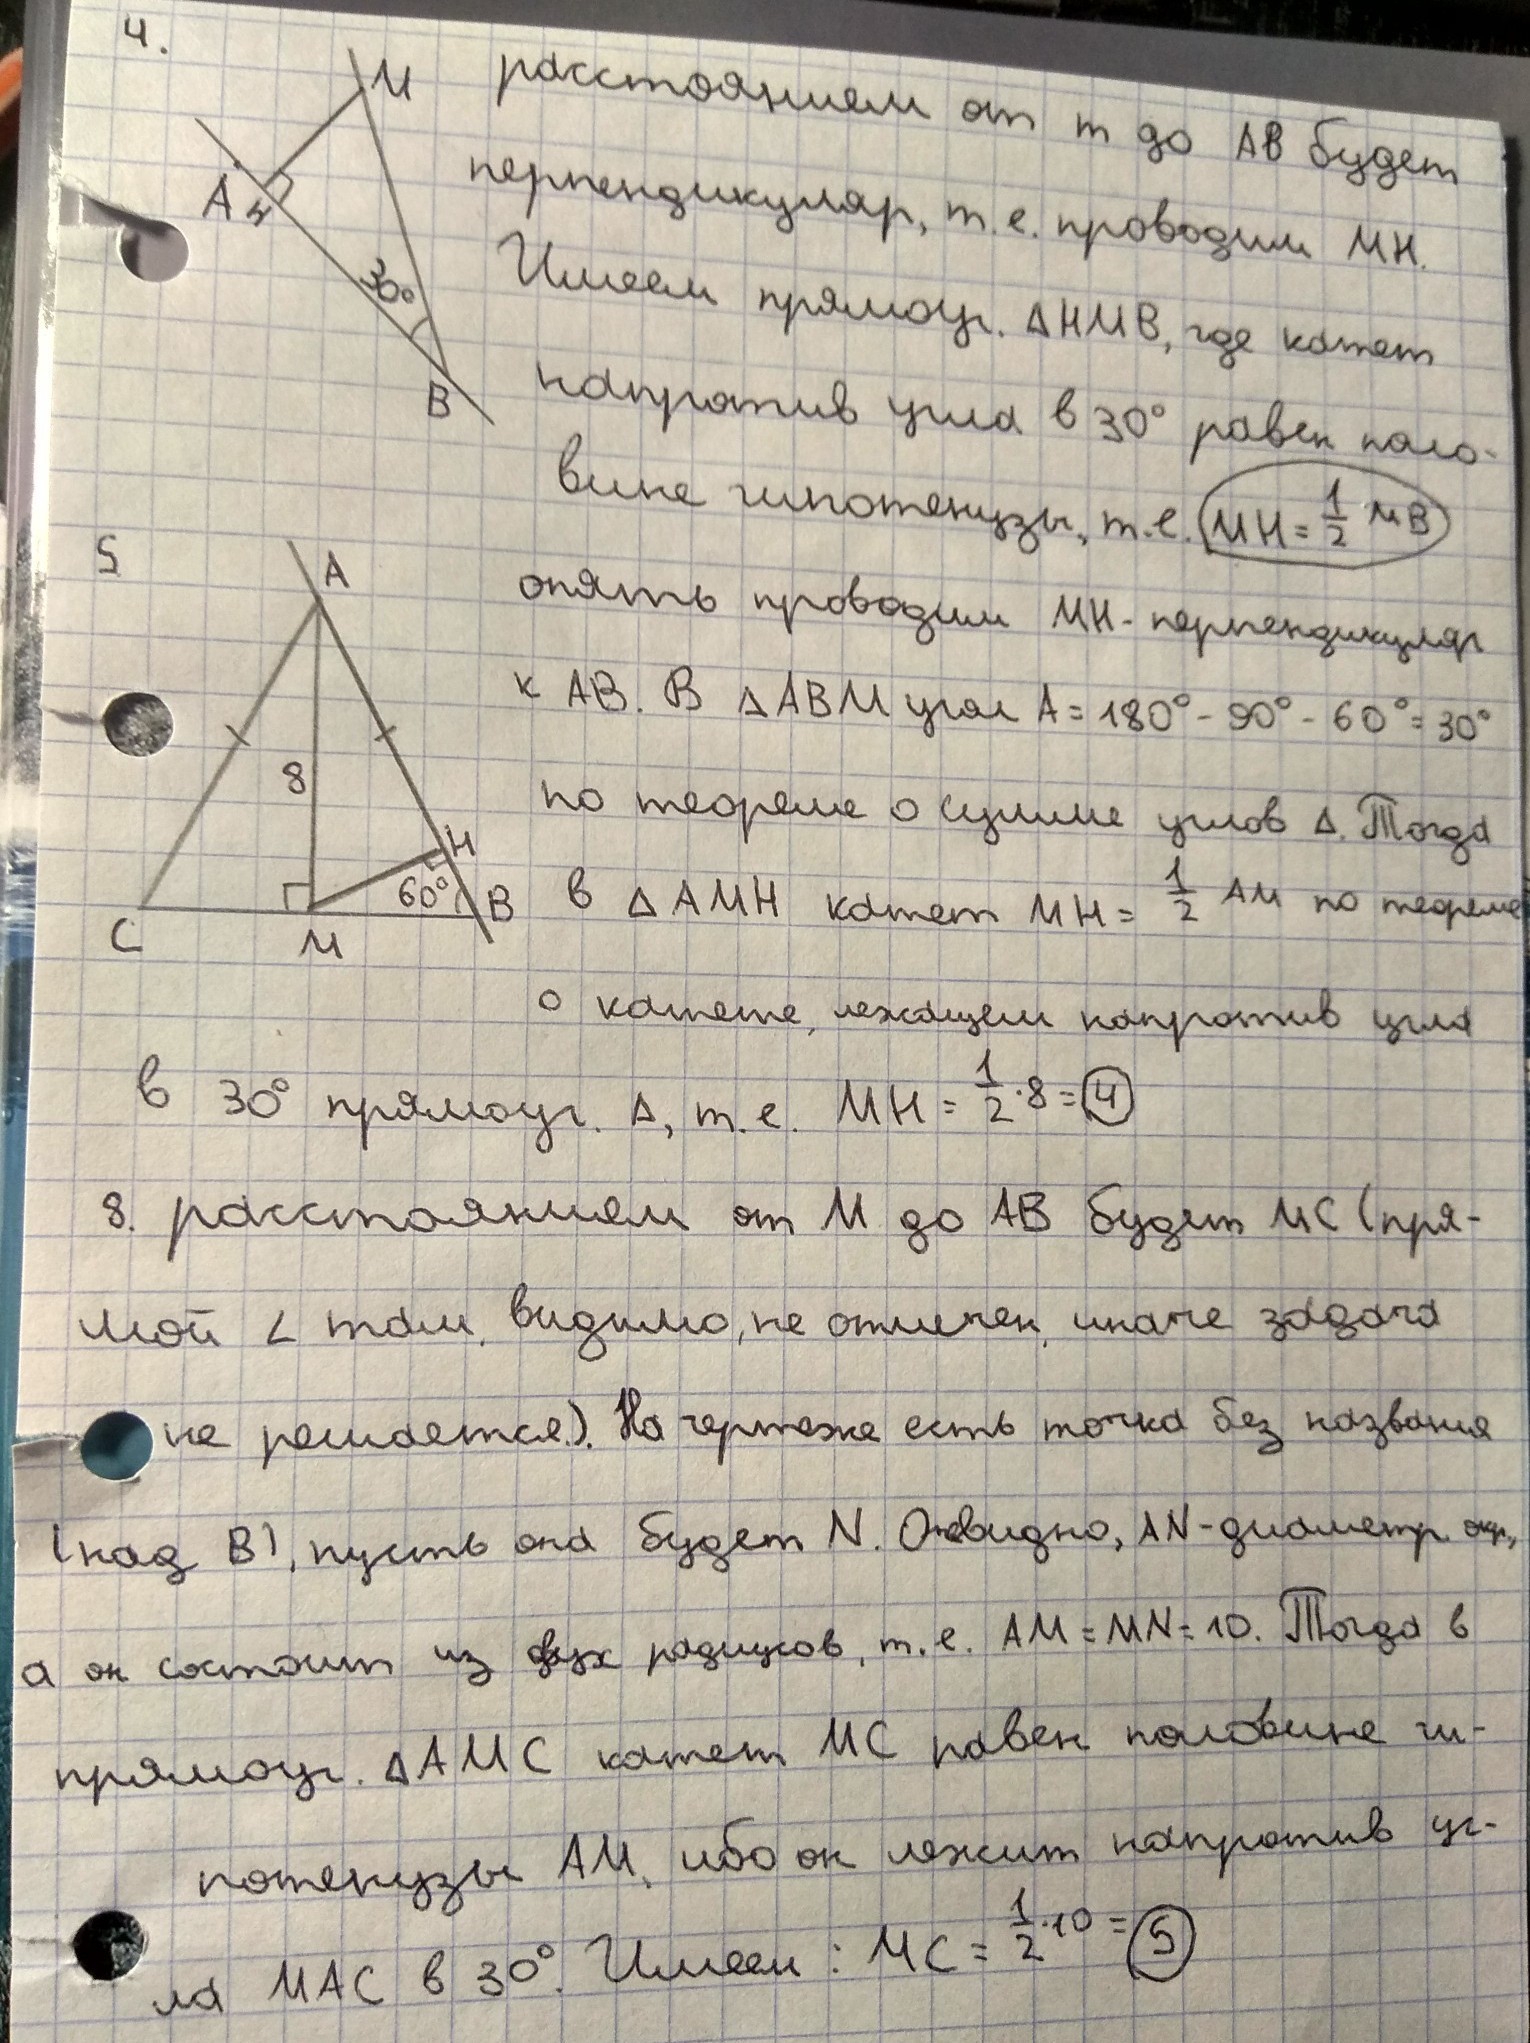 4.
M
расстоянием от m до AB будет
перпендикуляр, т.е. проводим MH.
A H
Имеем прямоуг. ΔHMB, где катет
30°
напротив угла в 30° равен поло-
B
вине гипотенузы, т.е. MH = 1/2 MB
5
A
опять проводим MH - перпендикуляр
к AB. В ΔABM угол A = 180° - 90° - 60° = 30°
8
по теореме о сумме углов Δ. Тогда
H
60°
B
в ΔAMH катет MH = 1/2 AM по теореме
C
M
о катете, лежащем напротив угла
в 30° прямоуг. Δ, т.е. MH = 1/2 · 8 = 4
8. расстоянием от M до AB будет MC (пря-
мой ∠ там, видимо, не отмечен, иначе задача
не решается). На чертеже есть точка без названия
(над B), пусть она будет N. Очевидно, AN - диаметр окр.,
а он состоит из двух радиусов, т.е. AM = MN = 10. Тогда в
прямоуг. ΔAMC катет MC равен половине ги-
потенузы AM, ибо он лежит напротив уг-
ла MAC в 30°. Имеем: MC = 1/2 · 10 = 5